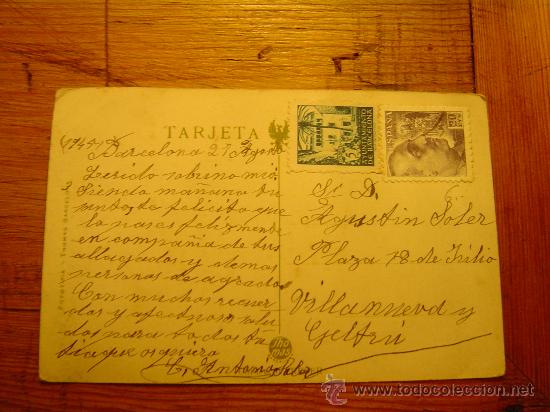 TARJETA
(1945)
Barcelona 27 Agosto
Querido sobrino mio
Siendo mañana tu
santo te felicito que
lo pases felizmente
en compañia de tus
allegados y demas
personas de agrado
Con muchos recuer
dos y afectuosos salu
dos para todos tu
tia que os quiere
Antonia Soler
AYUNTAMIENTO
DE BARCELONA
ESPAÑA
20
CTS
Sr. D.
Agustin Soler
Plaza 18 de Julio
Villanueva y
Geltrú
THO
MAS
www.todocoleccion.net